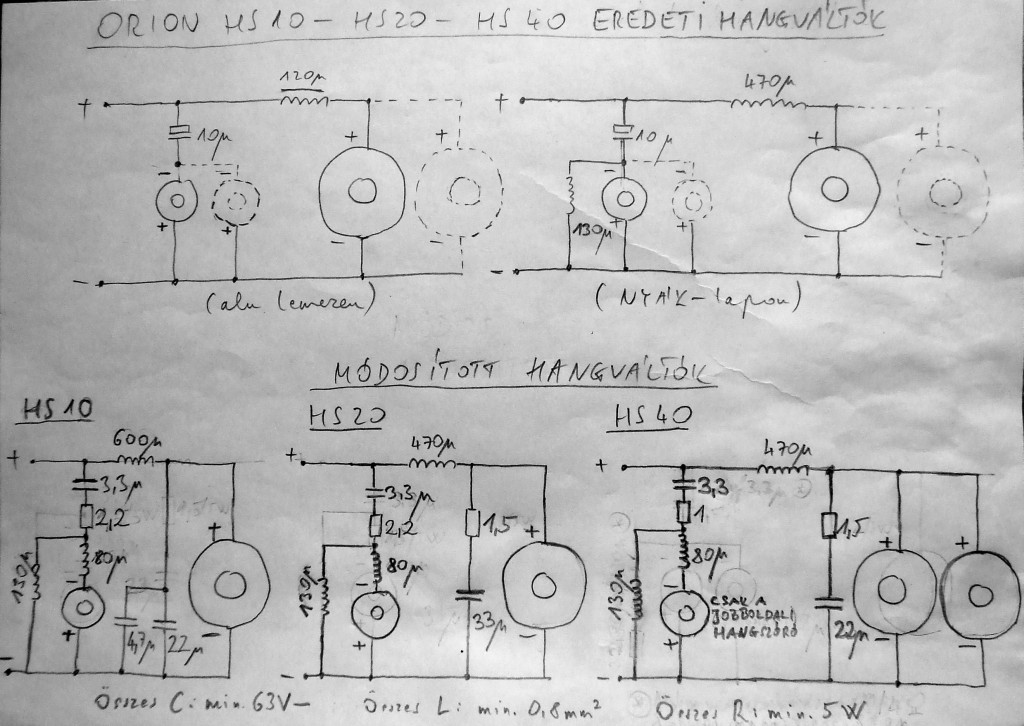 ORION HS10 - HS20 - HS 40 EREDETI HANGVÁLTÓK
120µ
+
10µ
+
+
-
-
+
+
-
-
-
(alu lemezen)
470µ
+
10µ
+
+
-
130µ
+
+
-
-
-
(NYÁK-lapon)
MÓDOSÍTOTT HANGVÁLTÓK
HS10
600µ
+
3,3µ
2,2
130µ
80µ
+
-
+
4,7µ
22µ
-
-
HS20
470µ
+
3,3µ
2,2
1,5
+
130µ
80µ
-
+
33µ
-
-
HS 40
470µ
+
3,3
1
1,5
+
+
130µ
80µ
-
CSAK A
JOBBOLDALI
HANGSZÓRÓ
+
22µ
-
-
-
Összes C: min. 63V~
Összes L: min. 0,8mm²
Összes R: min. 5W